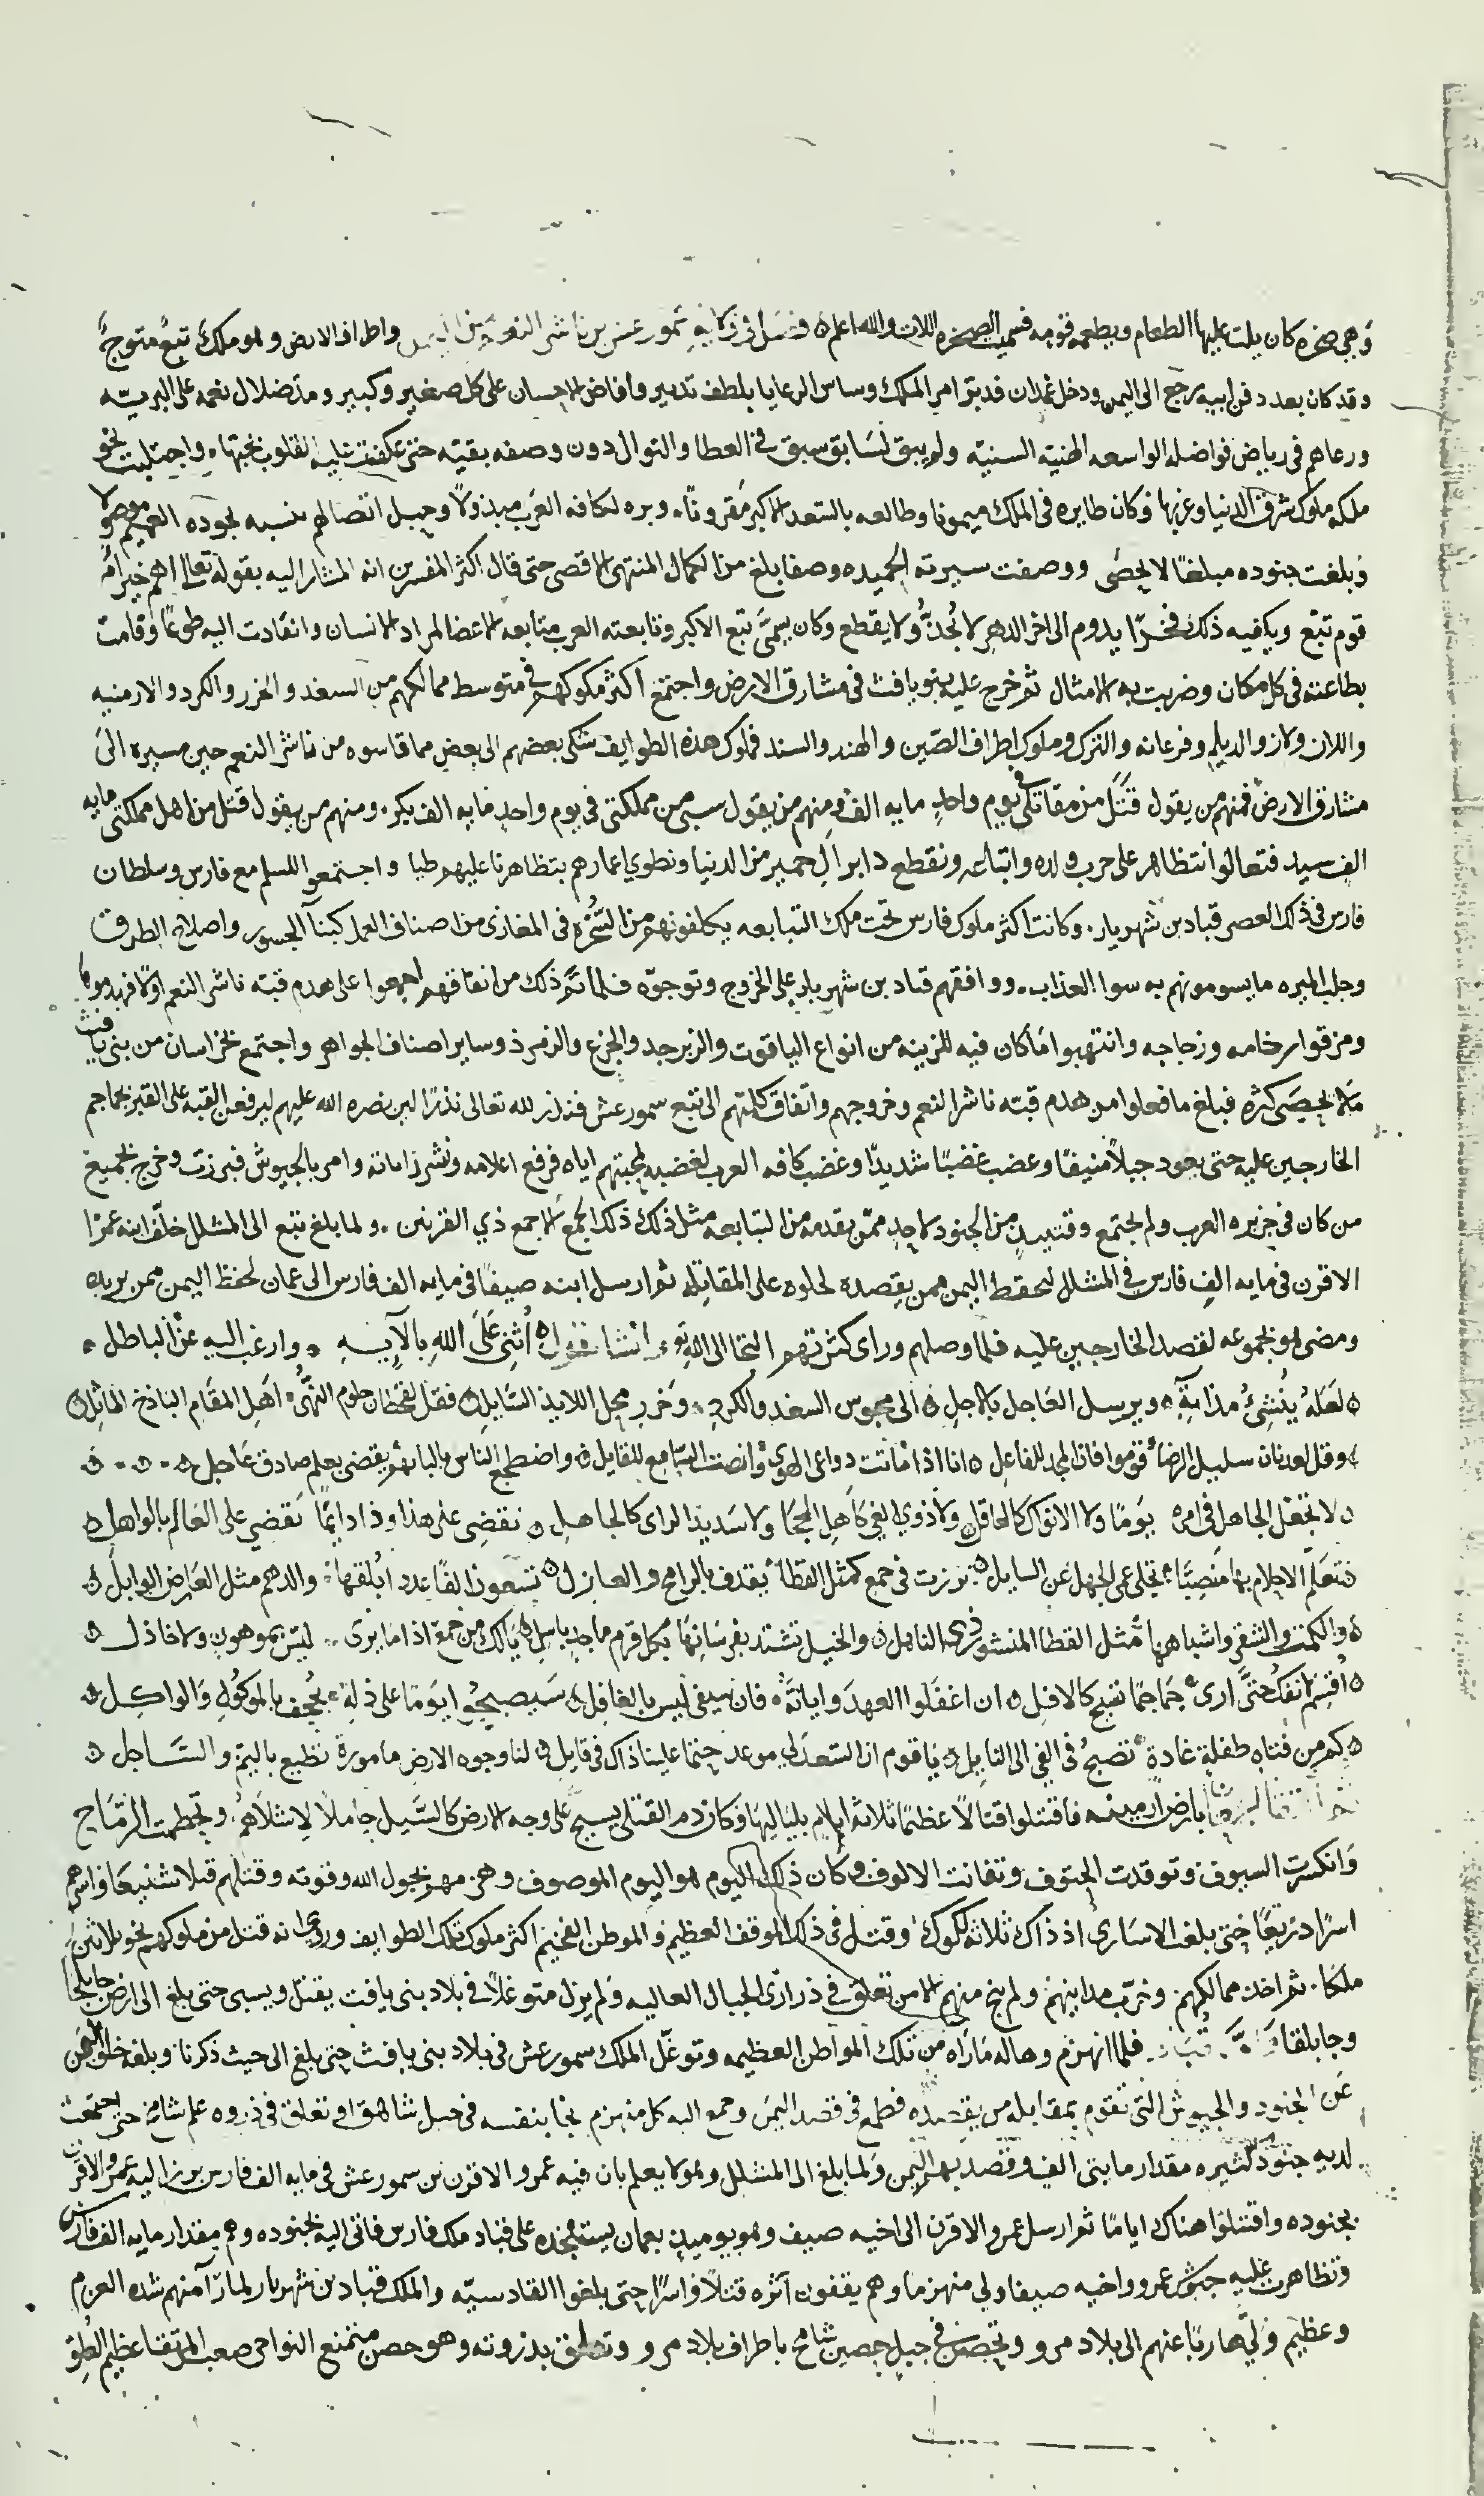 وهي صخره كان يلت عليها الطعام ويطعمه قومه فسميت الصخره اللات والله اعلم فصل في ذكر شمور عش بن ناشر النعم واطراف الارض وهو ملك تبع متوج
وقد كان بعد دفن ابيه رجع الى اليمن ودخل غمدان فدبر امر الملك وساس الرعايا بلطف تدبير وافاض الاحسان على كل صغير وكبير ومد ضلال نعمه على البريه
ورعاهم في رياض فواضله الواسعه الهنيه السنيه ولم يبق لسابق سبق في العطا والنوال دون وصفه بقيه حتى عكفت عليه القلوب بمحبتها واجتلبت نحو
ملكه ملوك شرق الدنيا وغربها وكان طايره في الملك ميمونا وطالعه بالسعد الاكبر مقرونا وبره لكافه العرب مبذولا وحبل اتصالهم بنسبه بجوده العميم موصولا
وبلغت جنوده مبلغا لا يحصى ووصفت سيرته الحميده وصفا بلغ من الكمال المنتهى الاقصى حتى قال اكثر المفسرين انه المشار اليه بقوله تعالى اهم خير ام
قوم تبع ويكفيه ذلك فخرا يدوم الى اخر الدهر لا يجذ ولا يقطع وكان يسمى تبع الاكبر وتابعته العرب متابعه الاعضا لمراد الانسان وانقادت اليه طوعا وقامت
بطاعته في كل مكان وضربت به الامثال ثم خرج عليه بنو يافث في مشارق الارض واجتمع اكثر ملوكهم في متوسط ممالكهم من السغد والخزر والكرد والارمنيه
واللان ولاز والديلم وفرغانه والترك وملوك اطراف الصين والهند والسند فملوك هذه الطوايف شكى بعضهم الى بعض مما قاسوه من ناشر النعم حين مسيره الى
مشارق الارض فمنهم من يقول قتل من مقاتلتي في يوم واحد مايه الف ومنهم من يقول سبي من مملكتي في يوم واحد مايه الف بكر ومنهم من يقول قتل من اهل مملكتي مايه
الف سيد فتعالوا نتظاهر على حرب ولده واتباعه ونقطع دابر ال حمير من الدنيا ونطوي اعمارهم بتظاهرنا عليهم طيا واجتمعوا للسلم مع فارس وسلطان
فارس في ذلك العصر قباد بن شهريار وكانت اكثر ملوك فارس تحت ملك التبابعه يكلفونهم من السخره في المغازي من اصناف العمل كبنا الجسور واصلاح الطرق
وجلب الميره ما يسومونهم به سوا العذاب ووافقهم قباد بن شهريار على الخروج وتوجه فلما تم ذلك من اتفاقهم اجمعوا على هدم قبة ناشر النعم اولا فهدموها
ومزقوا رخامه وزجاجه وانتهبوا ما كان فيه للزينه من انواع الياقوت والزبرجد والجزع والزمرذ وساير اصناف الجواهر واجتمع بخراسان من بني يافث
مالا يحصى كثره فبلغ ما فعلوا من هدم قبته ناشر النعم وخروجهم واتفاق كلمتهم الى تبع سمور عش فنذر لله تعالى نذرا لين نصره الله عليهم ليرفعن القبه على القبر بجماجم
الخارجين عليه حتى يعود جبلا منيفا وغضب غضبا شديدا وغضب كافه العرب لغضبه لمحبتهم اياه فرفع اعلامه ونشر راياته وامر بالجيوش فبرزت وخرج بجميع
من كان في جزيره العرب ولم يجتمع وقتيذ من الجنود لاحد ممن يقدمه من التبابعه مثل ذلك ذلك الجمع الاجمع ذي القرنين ولما بلغ تبع الى المشلل خلف ابنه عمرا
الاقرن في مايه الف فارس في المشلل ليحفظ اليمن ممن يقصده لحلوه على المقابله ثم ارسل ابنه صيفا في مايه الف فارس الى عمان لحفظ اليمن ممن يريده
ومضى هو بجموعه لقصد الخارجين عليه فلما وصلهم وراى كثرتهم التجا الى الله انشا يقول اثني على الله بالايه وارغب اليه عن الباطل
لعله ينشئ مذانة ويرسل العاجل بالاجل الى مجوس السغد والكرد وخرر محل اللايذ السايل فقل لقحطان حلوم النهى اهل المقام الباذخ الماثل
وقل لعدنان سليل الرضا قوموا فان المجد للفاعل انا اذا ما نت دواعي الهوى وانصت السامع للقايل واضطجع الناس بالبابهم يقضى بعلم صادق عاجل
لا تجعل الجاهل في امره يوما ولا الانوك كالعاقل ولا ذوي الغي كاهل الحجا ولا سديد الراي كالجاهل نقضي على هذا وذا دايما نقضي على العالم بالواهل
فتعلم الاحلام بها منصبا تجلى عمى الجهل عن السايل برزت في جمع كمثل القطا يقدف بالرامح والعازل تسعون الفا عدد ابلقها والدهم مثل العارض الوابل
والكمت والشقر واشباهها مثل القطا المنشور ذي النايل والخيل تشتد بفرسانها بكل قرم ماجد باسل يالك من جمع اذا ما برى ليس بموهون ولا خاذل
اقسم لا نفك حتى ارى جماجما تفيح كالافل ان اغفلوا العهد واياته فان سيفي ليس بالغافل سيصبحوا يوما على ذلة يجحف بالموكول والواكل
كم من فتاه طفلة غادة تصبح في الفي الى النايل يا قوم ان السعد لي موعد حتما علينا ذاك في قابل لنا وجوه الارض مامورة تطيع باليم والساحل
بارض ارمينيه فاقتتلوا قتالا عظما ثلاثه ايام بلياليها وكان دم القتلى يسيح على وجه الارض كالسيل حاملا لاشلاهم وتحطمت الرماح
وانكسرت السيوف وتوقدت الحتوف وتفانت الالوف وكان ذلك اليوم هو اليوم الموصوف وهزمهم بحول الله وقوته وقتلهم قتلا شنيعا واسرهم
اسرا ذريعا حتى بلغت الاسارى اذ ذاك ثلاثه لكوك وقتل في ذلك الموقف العظيم والموطن الفخيم اكثر ملوك تلك الطوايف وروي انه قتل من ملوكهم نحو ثلاثين
ملكا ثم اخذ ممالكهم وخرب مداينهم ولم ينج منهم الا من تعلق في ذراري الجبال العاليه ولم يزل متوغلا في بلاد بني يافت يقتل ويسبى حتى بلغ الى ارض جابلجا
وجابلقا فلما انهزم وهاله ما راه من تلك المواطن العظيمه وتوغل الملك سمور عش في بلاد بني يافث حتى بلغ الى حيث ذكرنا وبلغه خلو اليمن
عن الجنود والجيوش التي تقوم بمقابله من يقصده فطمع في قصد اليمن وجمع اليه كل منهزم نجا بنفسه في جبل شاهق او تعلق في ذروه علم شامخ حتى اجتمعت
لديه جنود كثيره مقدار مايتي الف وقصد بهم اليمن ولما بلغ الى المشلل وهو لا يعلم بان فيه عمرو الاقرن بن سمور عش في مايه الف فارس برز اليه عمرو الاقرن
بجنوده واقتتلوا هناك اياما ثم ارسل عمرو الاقرن الى اخيه صيف وهو يوميذ بعمان يستنجده على قباد ملك فارس فاتى اليه بجنوده وهم مقدار مايه الف فارس
وتظاهرت عليه جيش عمرو واخيه صيفا ولي منهزما وهم يقفون اثره قتلا واسرا حتى بلغوا القادسيه والملك قباد بن شهريار لما راى منهم شده العزم
وعظيم ولى هاربا عنهم الى بلاد مرو وتحصن في جبل حصين شامخ باطراف بلاد مرو وتعلق بذروته وهو حصن متمنع النواحي صعب المرتقا عظيم الطول